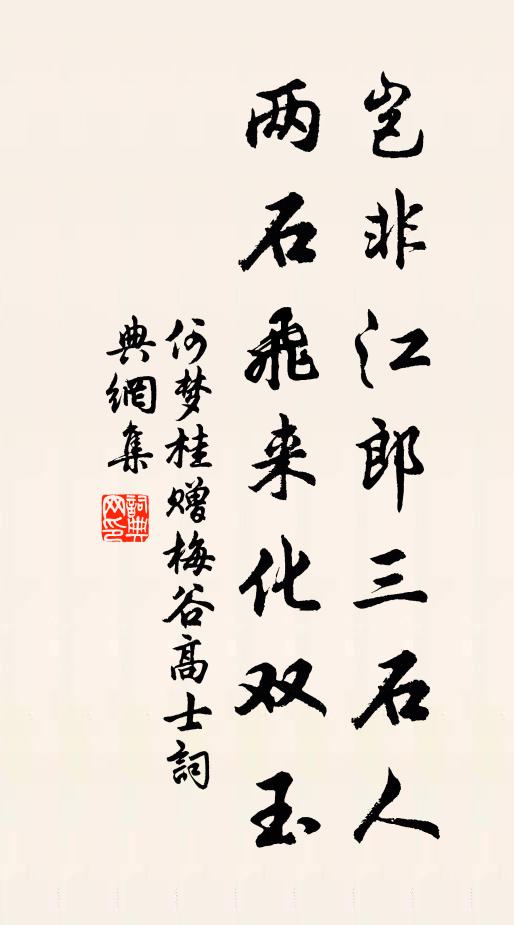 岂非江郎三石人
两石飛来化双玉
何梦桂赠梅谷高士詞
典網集
詞典网印